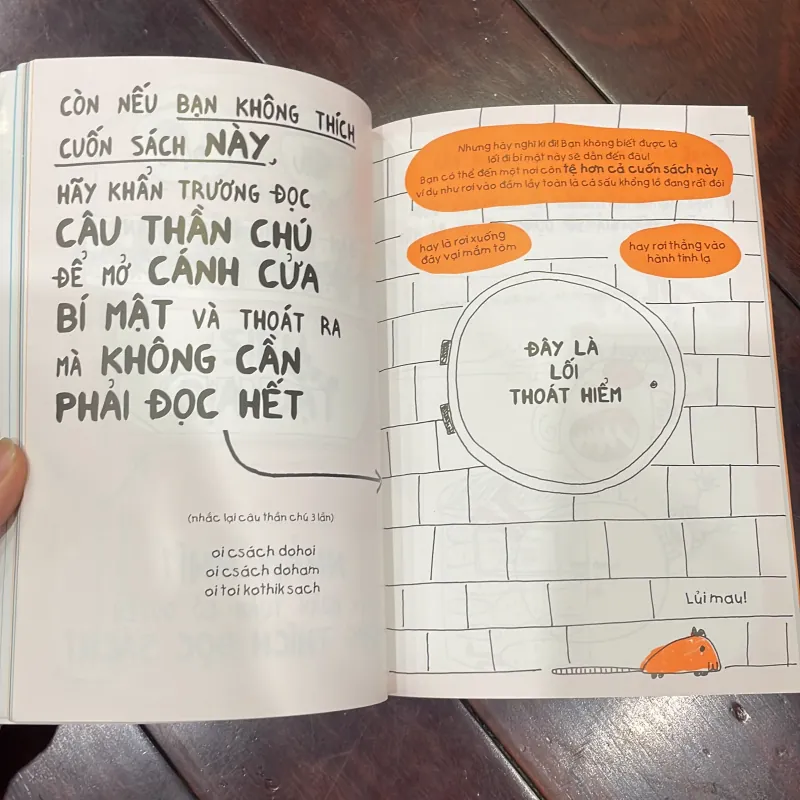 CÒN NẾU BẠN KHÔNG THÍCH
CUỐN SÁCH NÀY,
HÃY KHẨN TRƯƠNG ĐỌC
CÂU THẦN CHÚ
ĐỂ MỞ CÁNH CỬA
BÍ MẬT VÀ THOÁT RA
MÀ KHÔNG CẦN
PHẢI ĐỌC HẾT
(nhắc lại câu thần chú 3 lần)
oi csách dohoi
oi csách doham
oi toi kothik sach
Nhưng hãy nghĩ kĩ đi! Bạn không biết được là
lối đi bí mật này sẽ dẫn đến đâu!
Bạn có thể đến một nơi còn tệ hơn cả cuốn sách này
ví dụ như rơi vào đầm lầy toàn là cá sấu khổng lồ đang rất đói
hay là rơi xuống
đáy vại mắm tôm
hay rơi thẳng vào
hành tinh lạ
ĐÂY LÀ
LỐI
THOÁT HIỂM
Lủi mau!